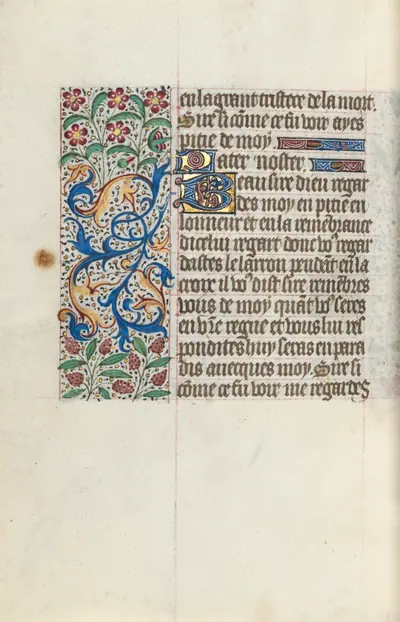 en la grant tristece de la mort.
Sire si cõme ce fu voir ayes
pitie de moy
Pater noster.
Beau sire dieu regar
des moy en pitie en
lonneur et en la remẽbrance
dicelui regart donc vo9 regar
dastes le larron pendãt en la
croix il vo9 dist sire remẽbres
vous de moy quãt vo9 seres
en vr̃e regne et vous lui res
pondites huy seras en para
dis auecques moy. Sire si
cõme ce fu voir me regardes